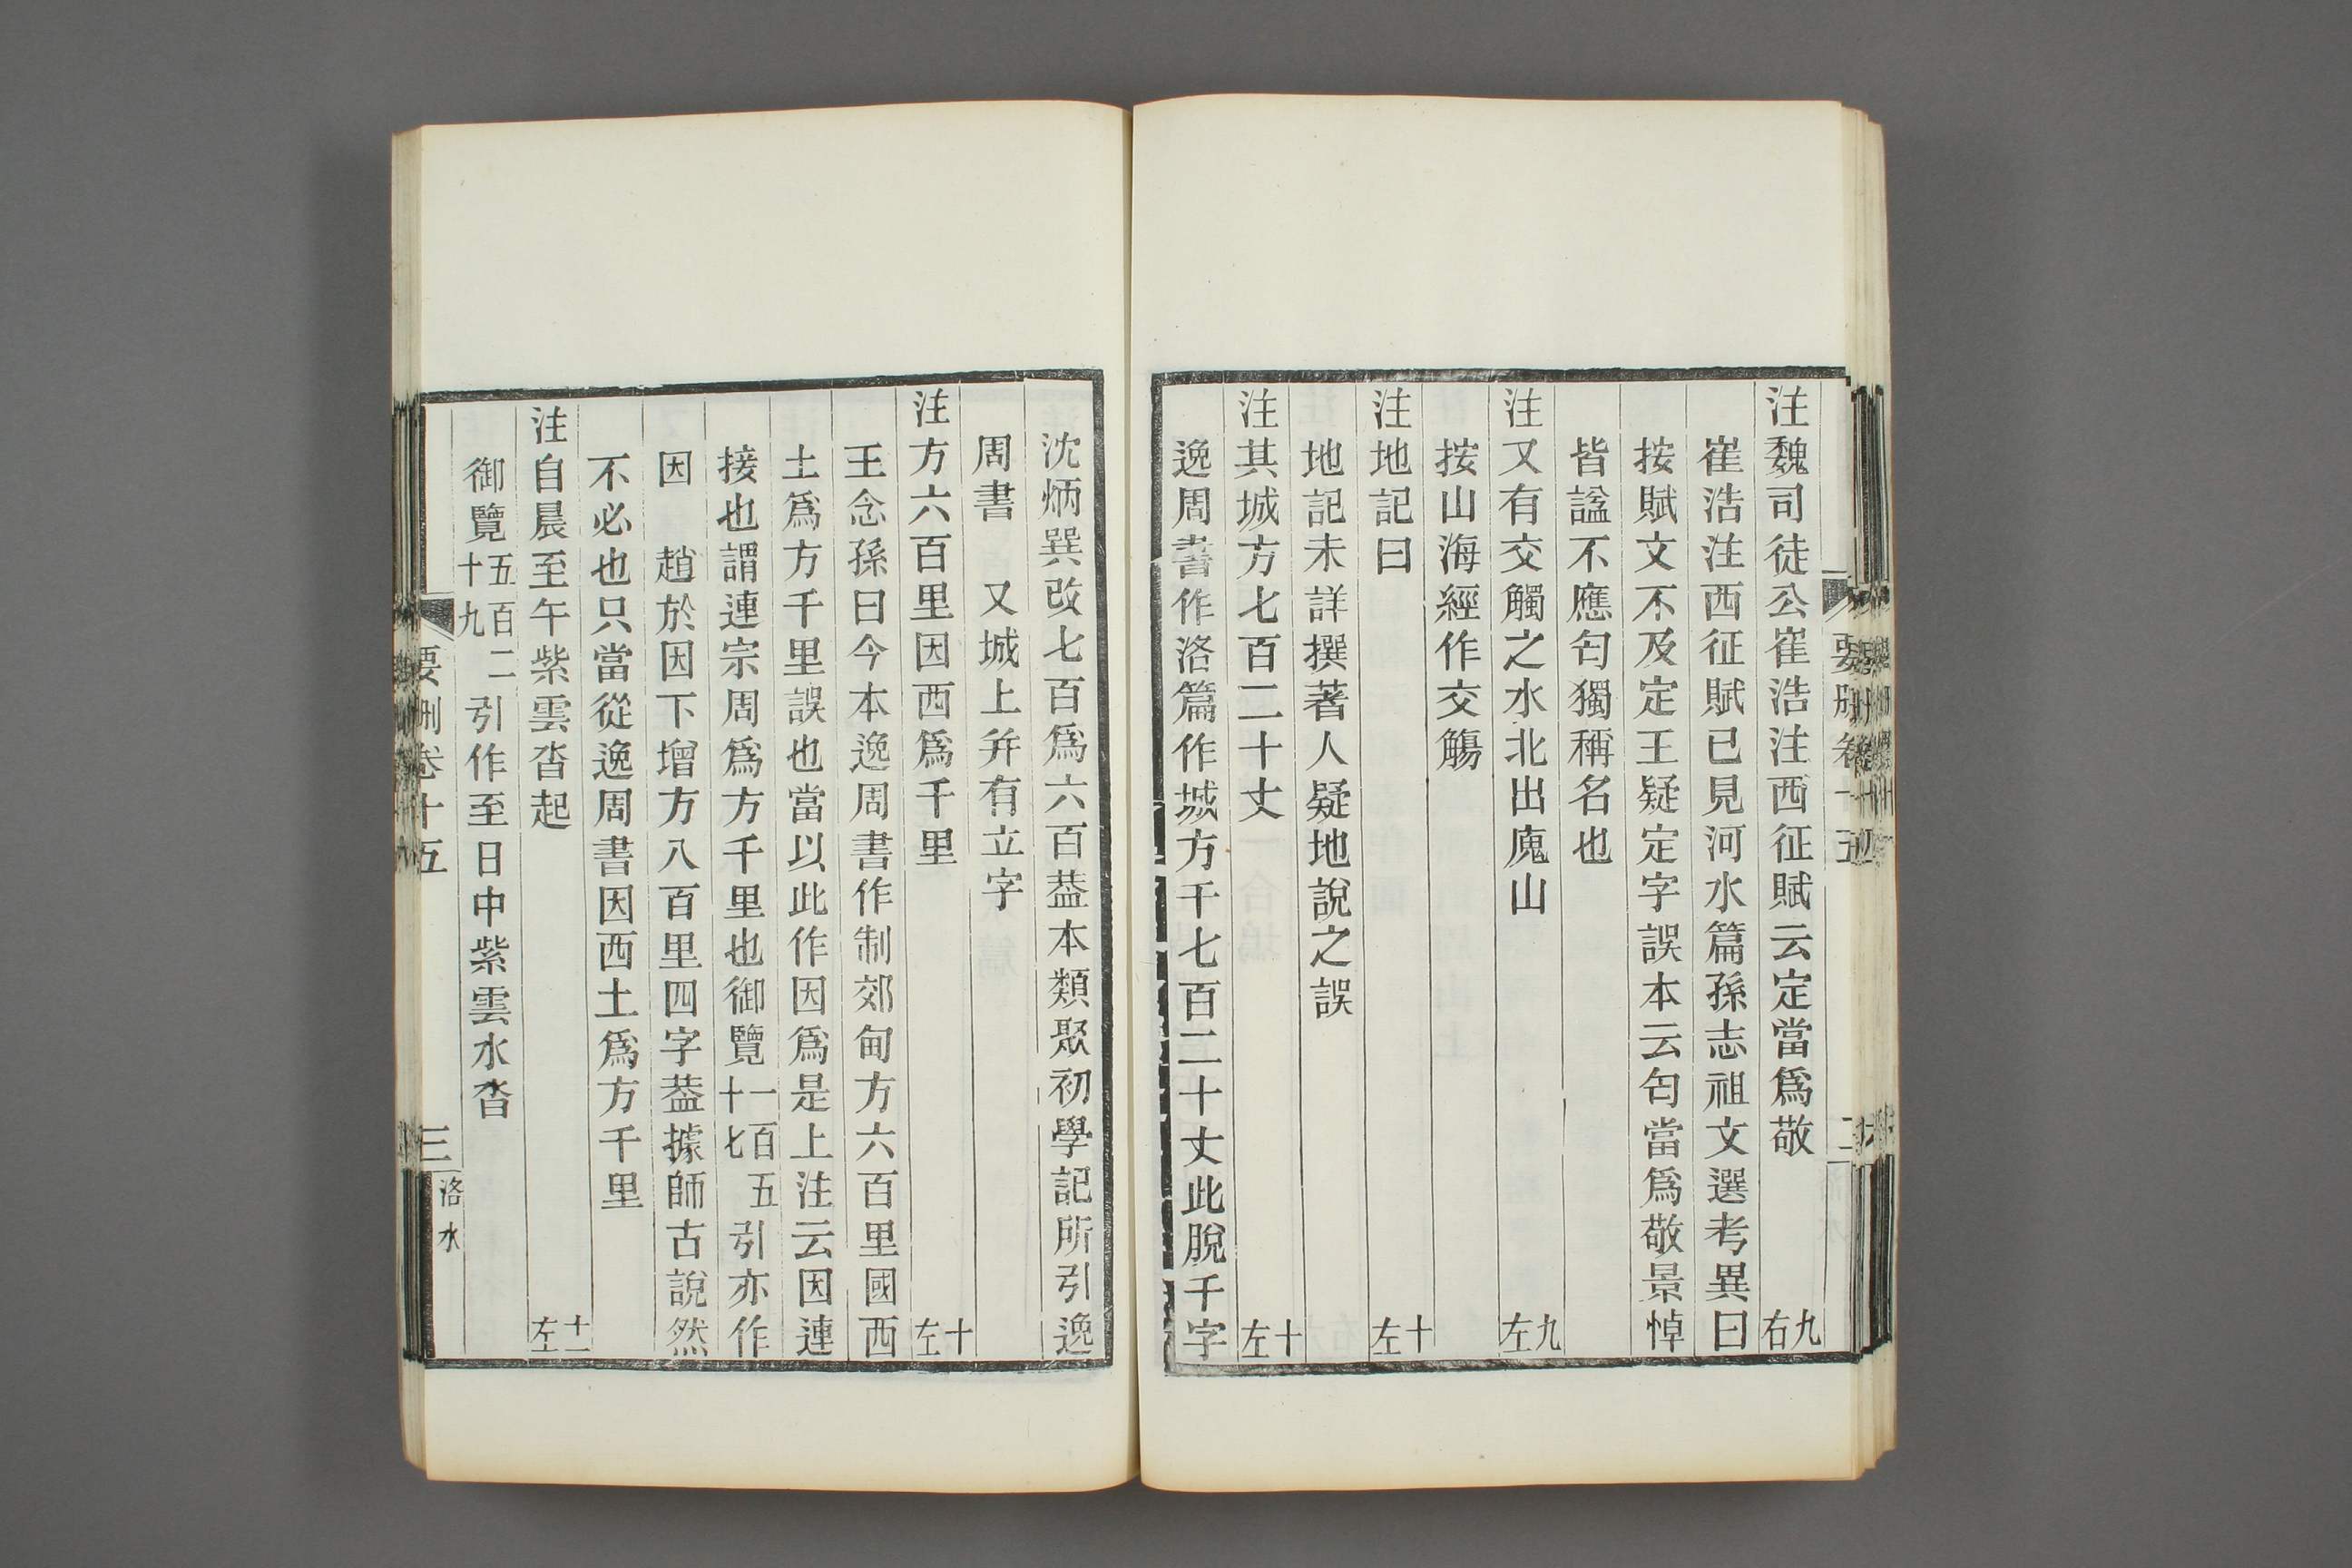 要刪卷十五
二
注魏司徒公崔浩注西征賦云定當爲敬 九右
崔浩注西征賦已見河水篇孫志祖文選考異曰
按賦文不及定王疑定字誤本云匄當爲敬景悼
皆諡不應匄獨稱名也
注又有交觸之水北出廆山 九左
按山海經作交觴
注地記曰 十左
地記未詳撰著人疑地說之誤
注其城方七百二十丈 十左
逸周書作洛篇作城方千七百二十丈此脫千字
沈炳巽改七百爲六百葢本類聚初學記所引逸
周書　又城上幷有立字
注方六百里因西爲千里 十左
王念孫曰今本逸周書作制郊甸方六百里國西
土爲方千里誤也當以此作因爲是上注云因連
接也謂連宗周爲方千里也御覽一百五十七引亦作
因　趙於因下增方八百里四字葢據師古說然
不必也只當從逸周書因西土爲方千里
注自晨至午紫雲沓起 十一左
御覽五百二十九引作至日中紫雲水沓
要刪卷十五
三
洛水